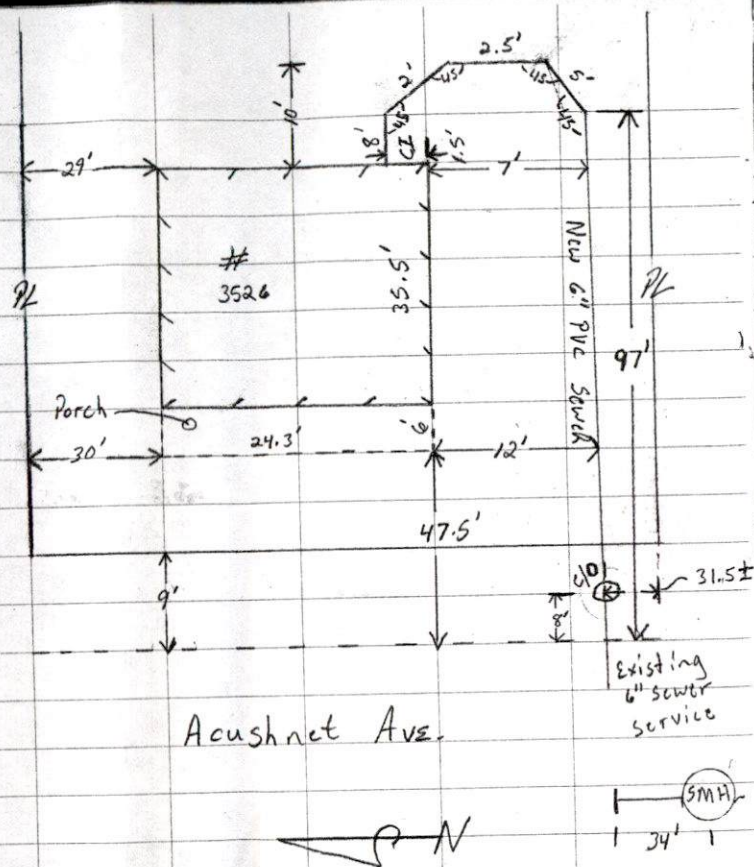 2.5'
2'
45
45
5'
10'
45
45'
8'
CI
1.5'
29'
7'
#
3526
35.5'
New 6" PVC Sewer
PL
PL
97'
Porch
6'
30'
24.3'
12'
47.5'
9'
C/O
31.5±
8'
Existing
6" sewer
service
Acushnet Ave.
SMH
N
34'